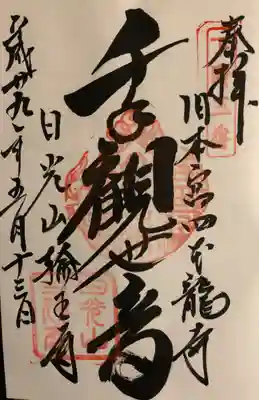 奉拝
旧本宮四本龍寺
千手観世音
日光山輪王寺
平成廿九年五月十三日